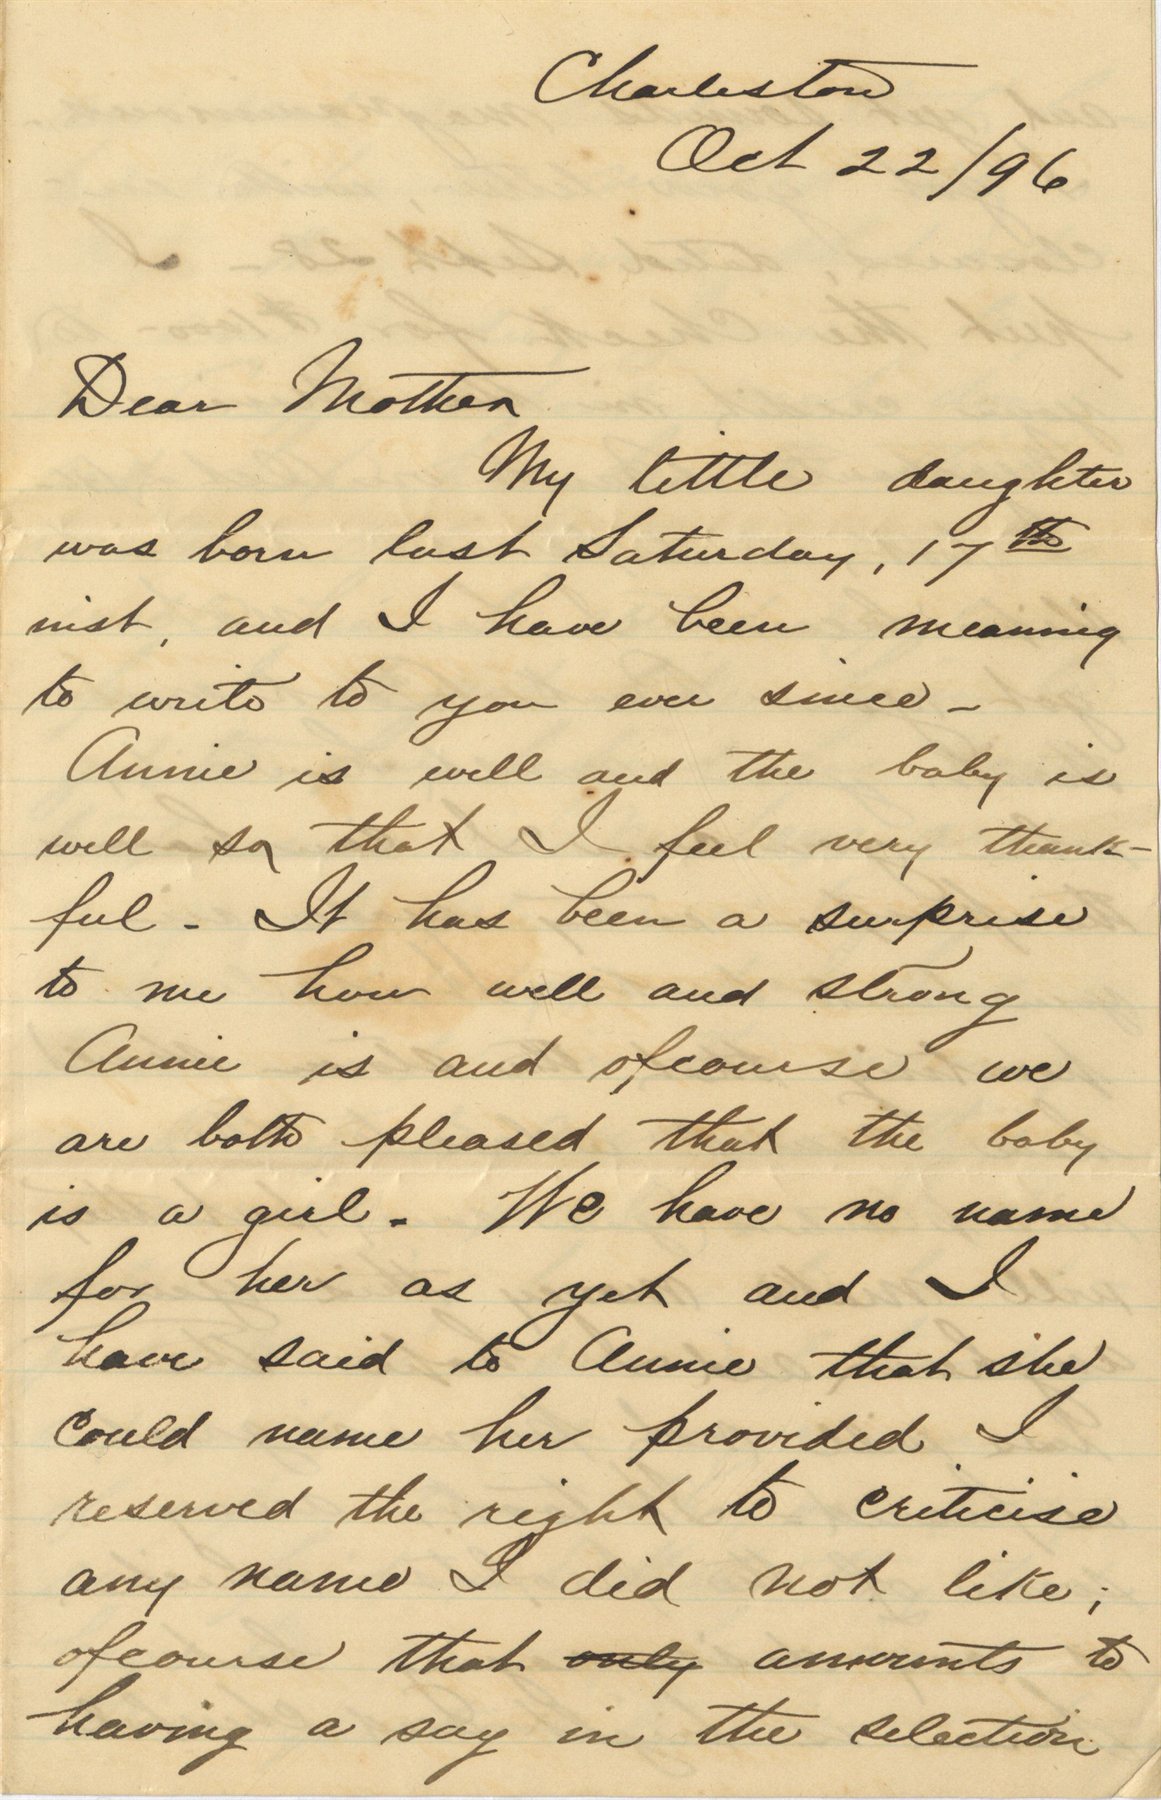 Charleston
Oct 22/96
Dear Mother
My little daughter
was born last Saturday, 17th
inst, and I have been meaning
to write to you ever since -
Annie is well and the baby is
well so that I feel very thank-
ful - It has been a surprise
to me how well and strong
Annie is and ofcourse we
are both pleased that the baby
is a girl. We have no name
for her as yet and I
have said to Annie that she
could name her provided I
reserved the right to criticise
any name I did not like;
ofcourse that only amounts to
having a say in the selection